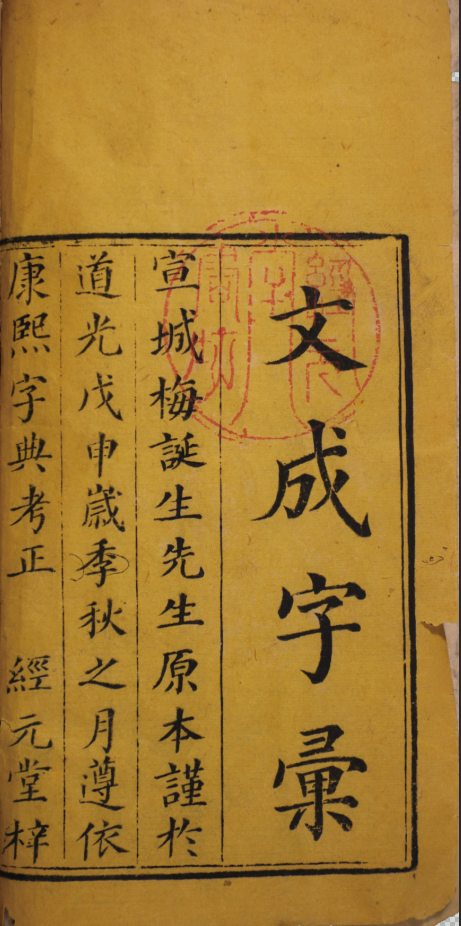 文成字彙
宣城梅誕生先生原本謹於
道光戊申歲季秋之月遵依
康熙字典考正 經元堂梓